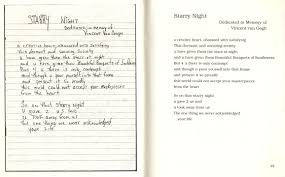 STARRY NIGHT
Dedicated in memory of
Vincent Van Gogh
a creative heart, obsessed with satisfying
This dormant and uncaring society
u have given them the stars at night
and u have given them Bountiful Bouquets of Sunflowers
But 4 u there is only contempt
and though u pour yourself into that frame
and present it so proudly
this world could not accept your masterpieces
from the heart
So on that starry night
u gave 2 us and
u took away from us
The one thing we never acknowledged
your life
Starry Night
Dedicated in Memory of
Vincent van Gogh
a creative heart, obsessed with satisfying
This dormant and uncaring society
u have given them the stars at night
and u have given them Bountiful Bouquets of Sunflowers
But 4 u there is only contempt
and though u pour yourself into that frame
and present it so proudly
this world could not accept your masterpieces
from the heart
So on that starry night
u gave 2 us and
u took away from us
The one thing we never acknowledged
your life